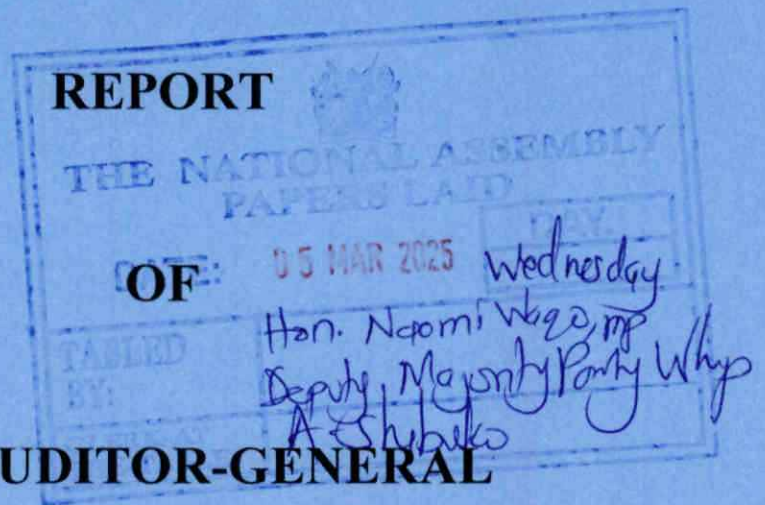 REPORT
THE NATIONAL ASSEMBLY
PAPERS LAID
DAY:
DATE: 05 MAR 2025 Wednesday
OF
TABLED
BY:
Hon. Naomi Waqo, MP
Deputy Majority Party Whip
A. Shibuko
UDITOR-GENERAL